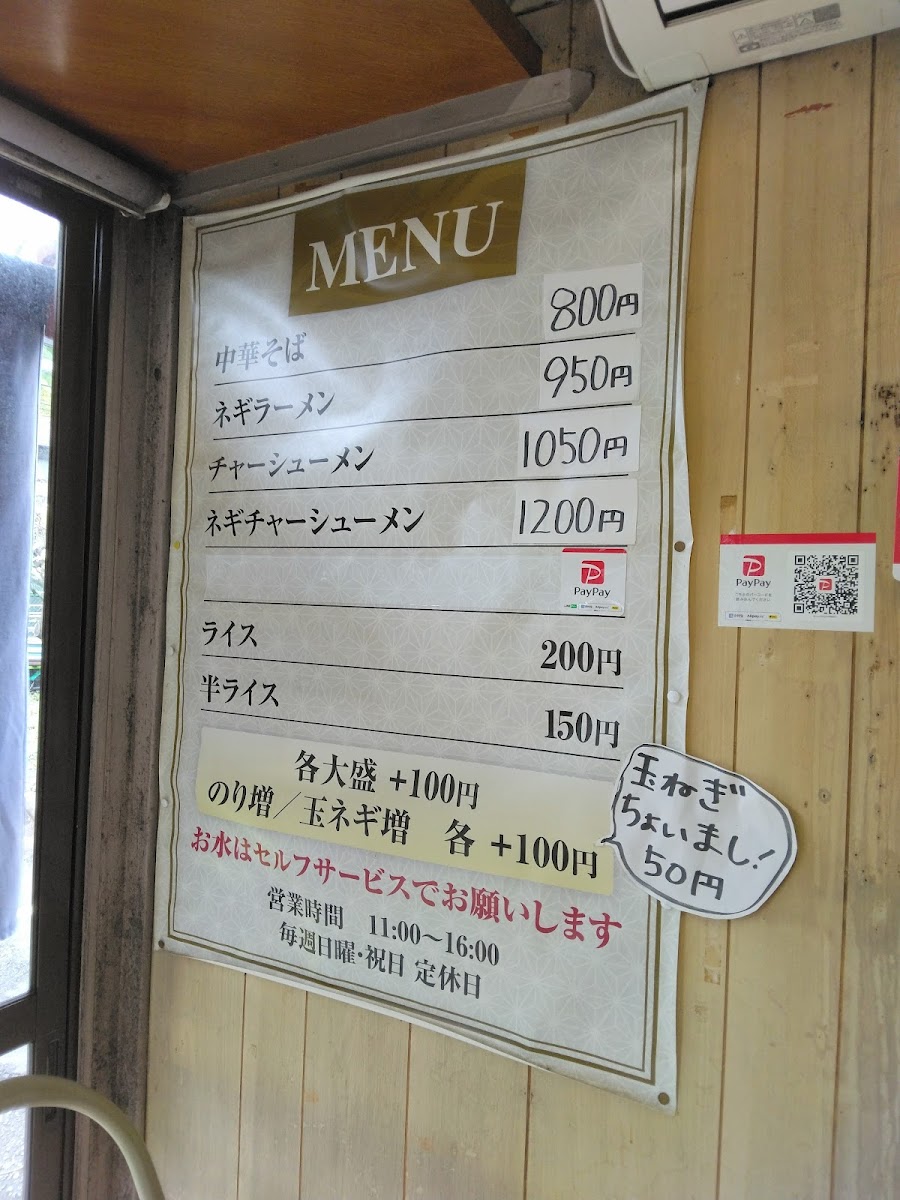 MENU
中華そば 800円
ネギラーメン 950円
チャーシューメン 1050円
ネギチャーシューメン 1200円
PayPay
ライス 200円
半ライス 150円
各大盛 +100円
のり増／玉ネギ増 各 +100円
お水はセルフサービスでお願いします
営業時間 11:00〜16:00
毎週日曜・祝日 定休日
玉ねぎ
ちょいまし!
50円
PayPay